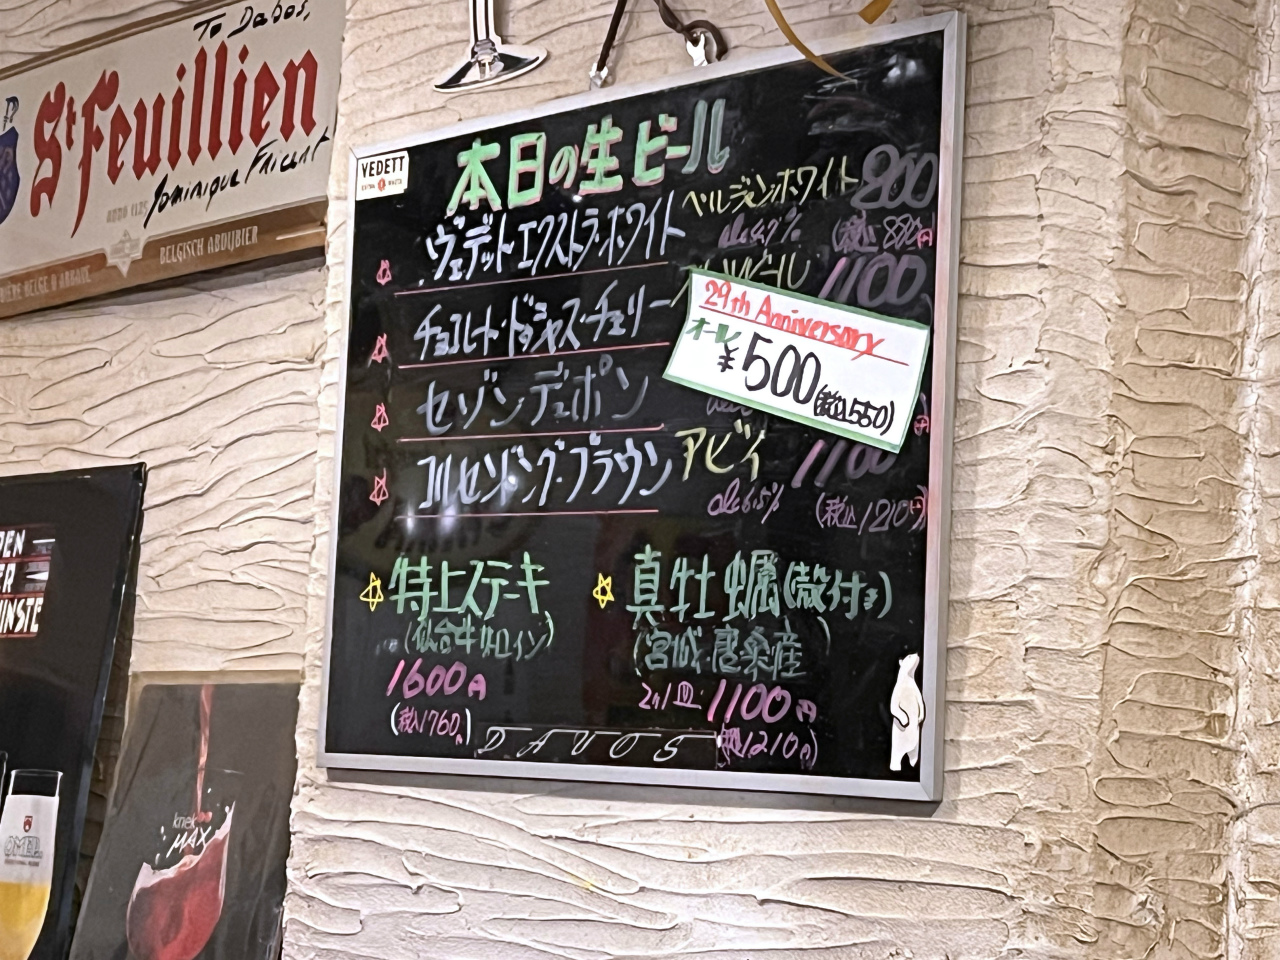 To Davos,
St Feuillien
Dominique Friart
ANNO 1125
BELGISCH ABDIJBIER
BIÈRE BELGE D'ABBAYE
VEDETT
EXTRA WHITE
本日の生ビール
ヴェデット・エクストラ・ホワイト ベルジャンホワイト 800
alc4.7% (税込880円)
チョコレート・ドゥシャス・チェリー ビール 1100
29th Anniversary
オール
¥500(税込550)
セゾンデュポン
コルセンドンク・ブラウン アビィ 1100
alc6.5% (税込1210円)
特上ステーキ
(仙台牛サーロイン)
1600円
(税込1760円)
真牡蠣(殻付き)
(宮城・唐桑産)
2ヶ1皿・1100円
(税込1210円)
DAVOS
knek
MAX